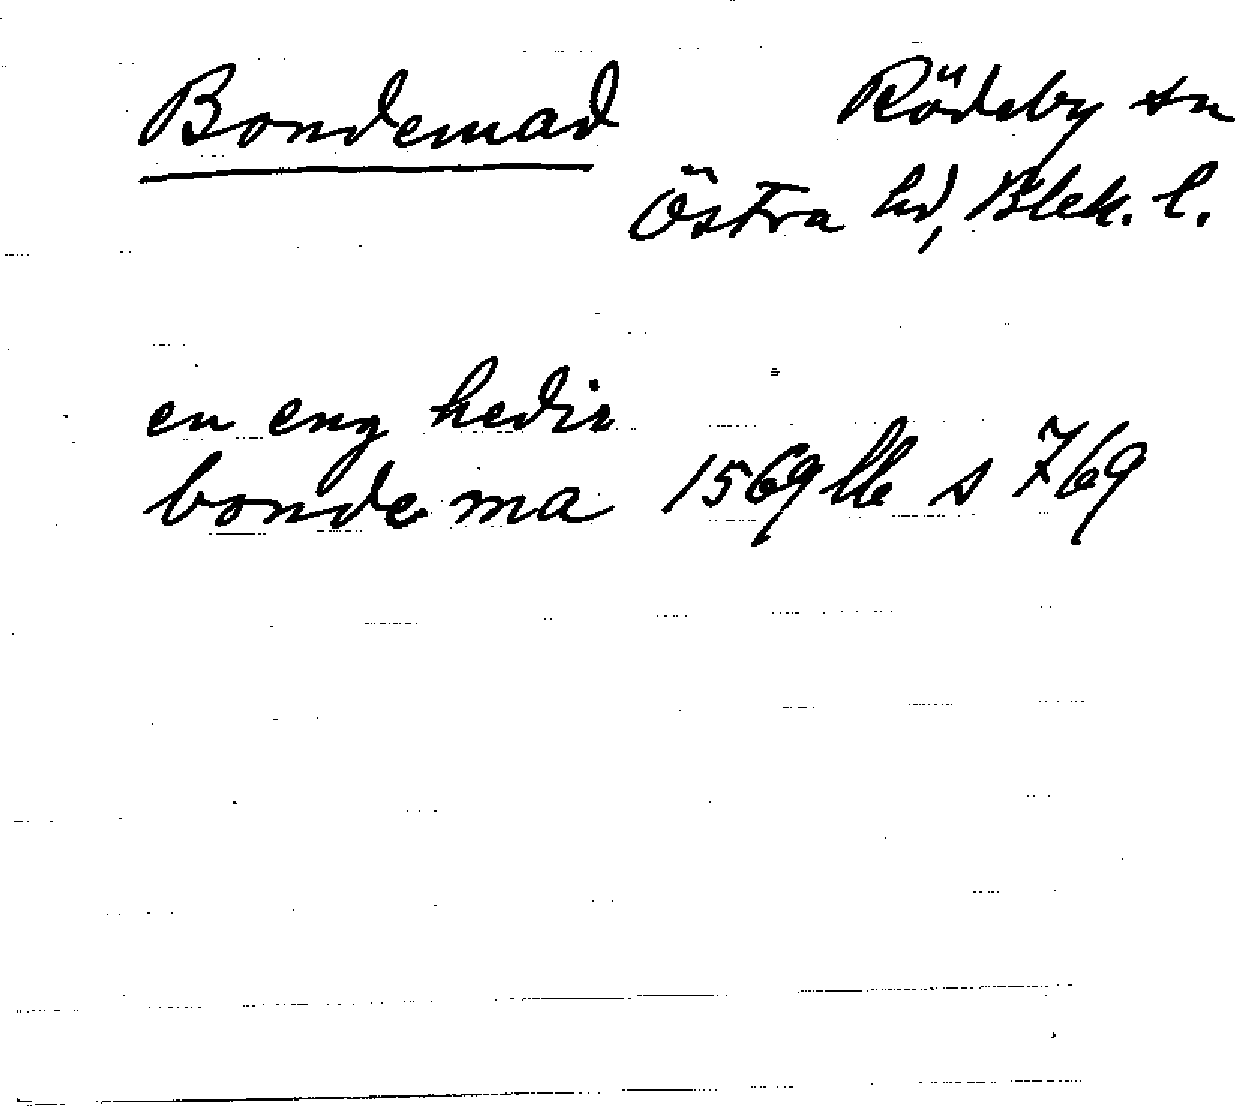 Bondemad
Rödeby sn
Östra hd, Blek. l.
en eng hedir
bonde ma 1569 llb s 769